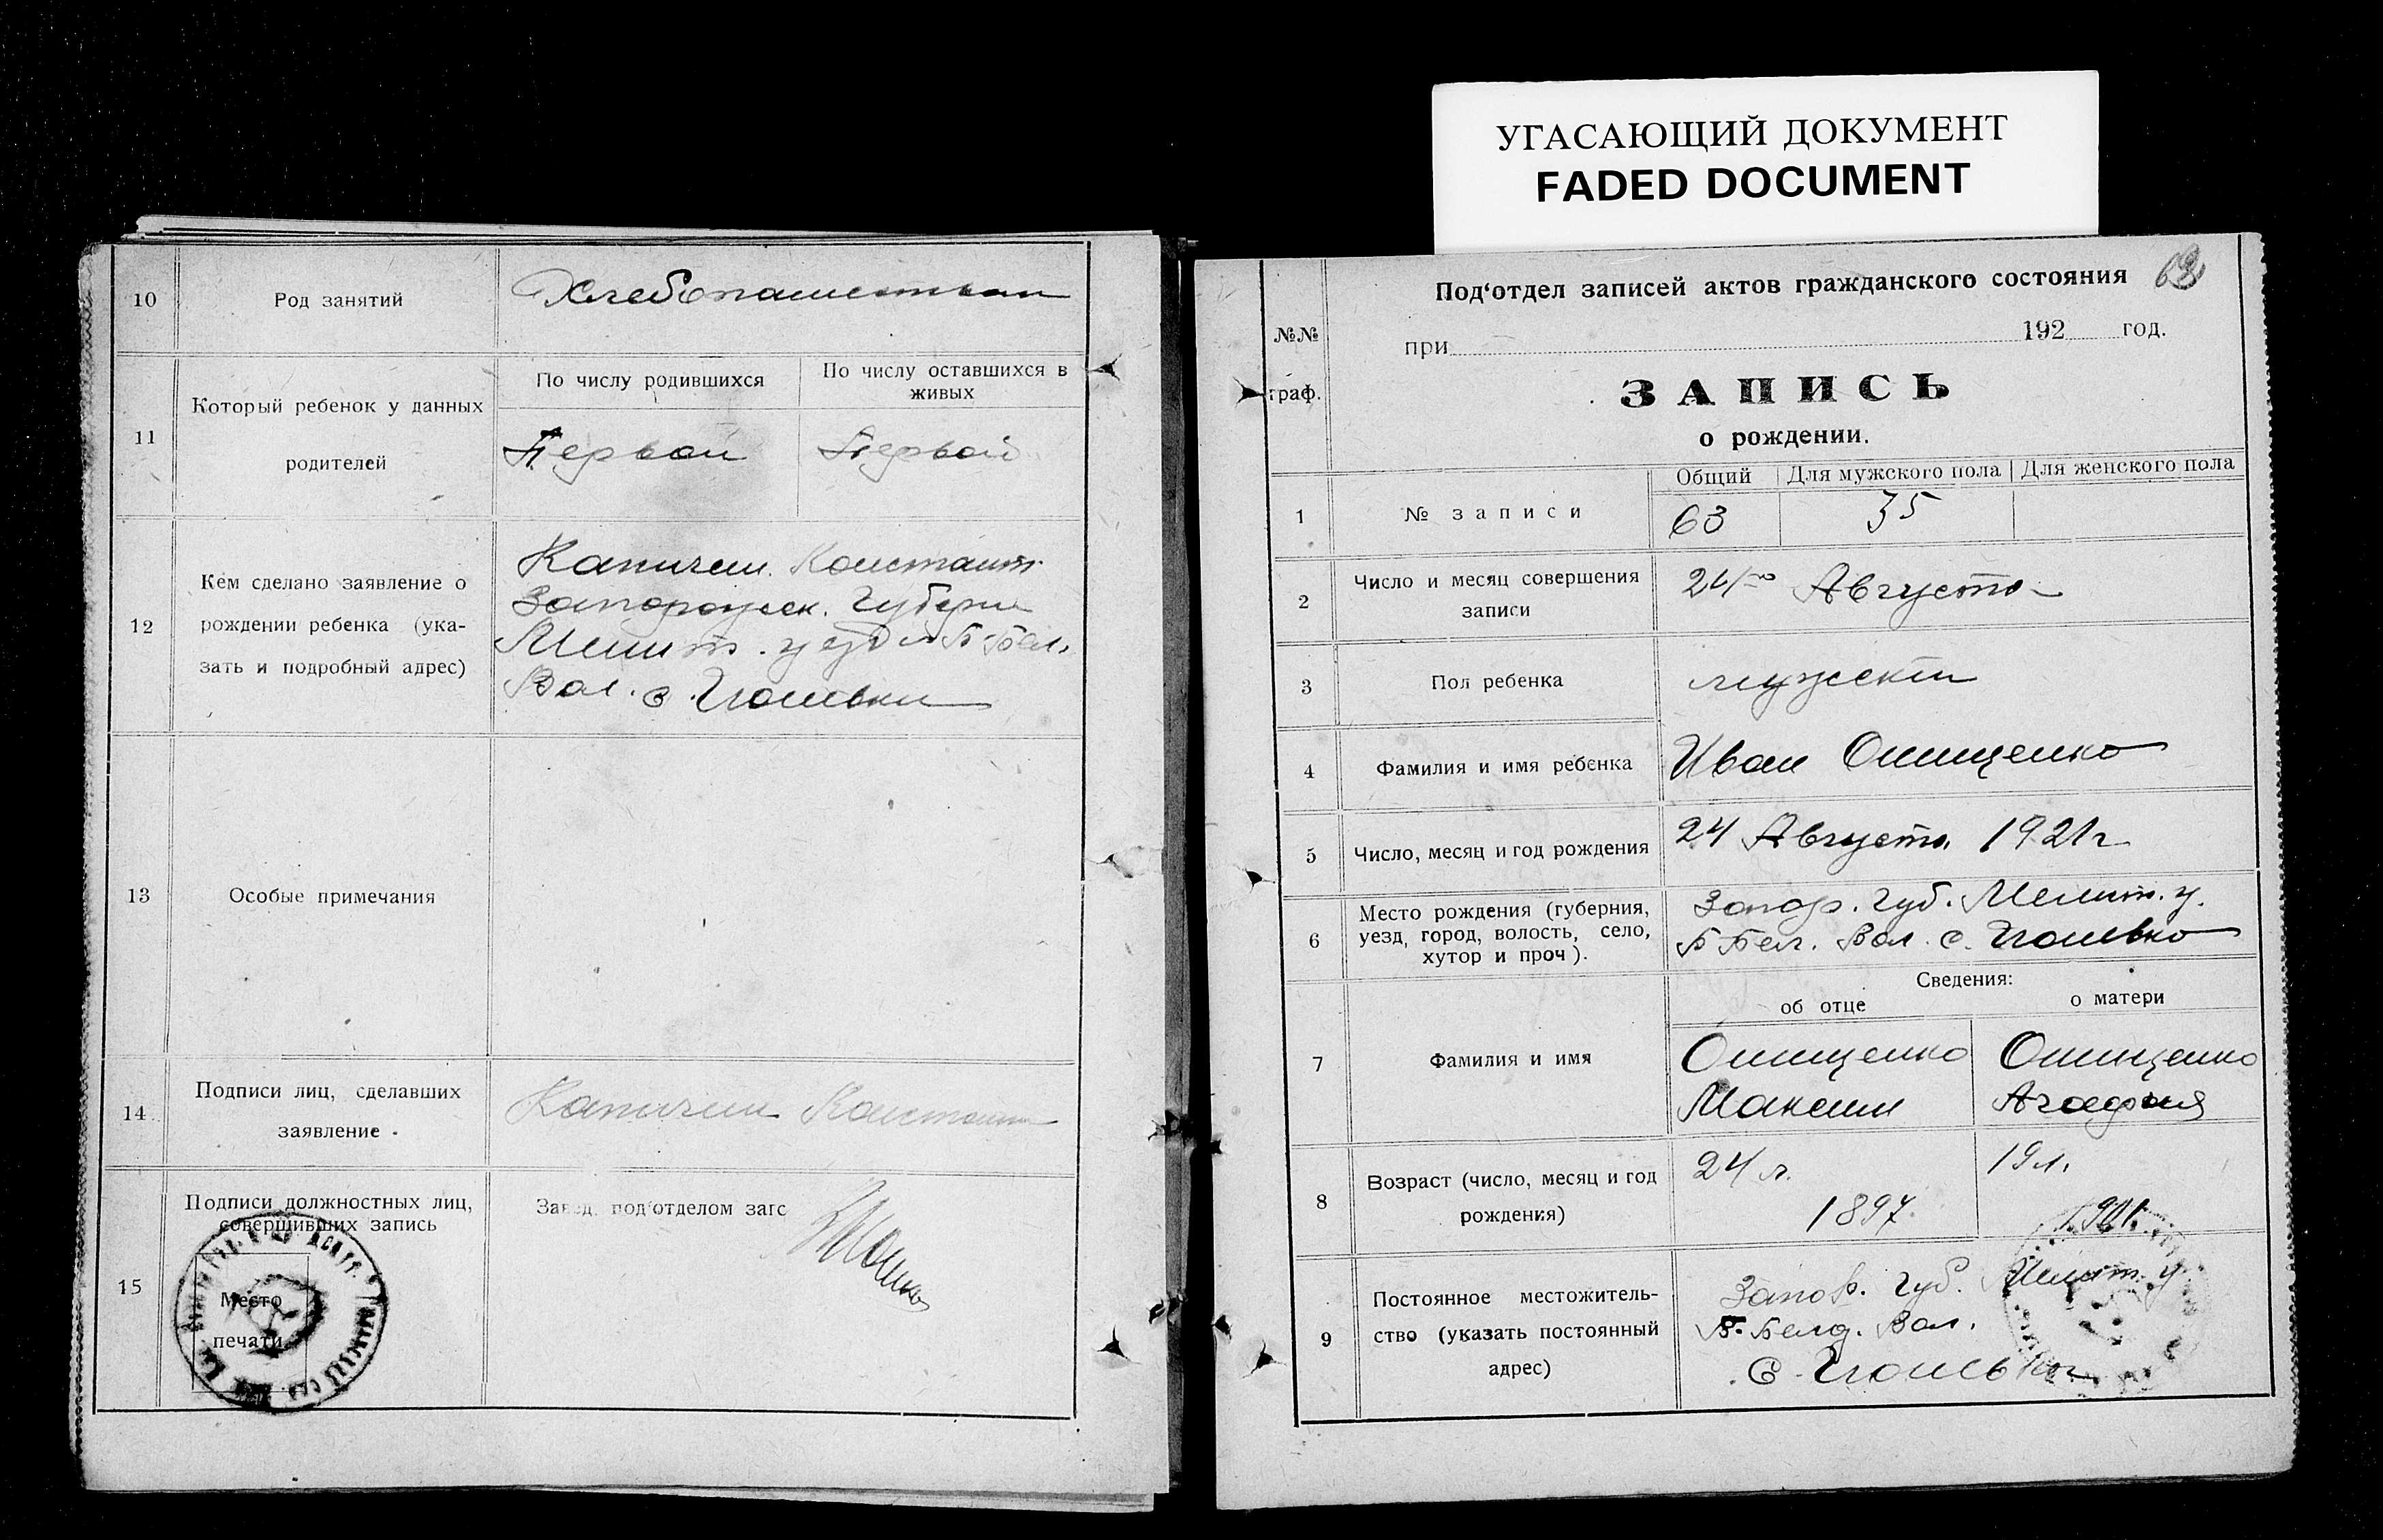 УГАСАЮЩИЙ ДОКУМЕНТ
FADED DOCUMENT
10
Род занятий
Хлебопашество
11
Который ребенок у данных
родителей
По числу родившихся
По числу оставшихся в
живых
Первый
Первый
12
Кем сделано заявление о
рождении ребенка (ука-
зать и подробный адрес)
Константин
Запорожск. Губерни
Мелит. уезд Б-Бел.
Вол. с.
13
Особые примечания
14
Подписи лиц, сделавших
заявление
15
Подписи должностных лиц,
совершивших запись
Место
печати
Завед. под‘отделом загс
63
№№
граф.
Под‘отдел записей актов гражданского состояния
при 192 год.
ЗАПИСЬ
о рождении.
Общий
Для мужского пола
Для женского пола
1
№ записи
63
35
2
Число и месяц совершения
записи
24го Августа
3
Пол ребенка
мужской
4
Фамилия и имя ребенка
Иван Онищенко
5
Число, месяц и год рождения
24 Августа 1921г
6
Место рождения (губерния,
уезд, город, волость, село,
хутор и проч).
Запор. Губ. Мелит. у.
Б Бел. Вол. с.
Сведения:
об отце
о матери
7
Фамилия и имя
Онищенко
Максим
Онищенко
Агафия
8
Возраст (число, месяц и год
рождения)
24 л.
1897
19 л.
9
Постоянное местожитель-
ство (указать постоянный
адрес)
Запор. Губ. Мелит. у
Б. Вол.
с.